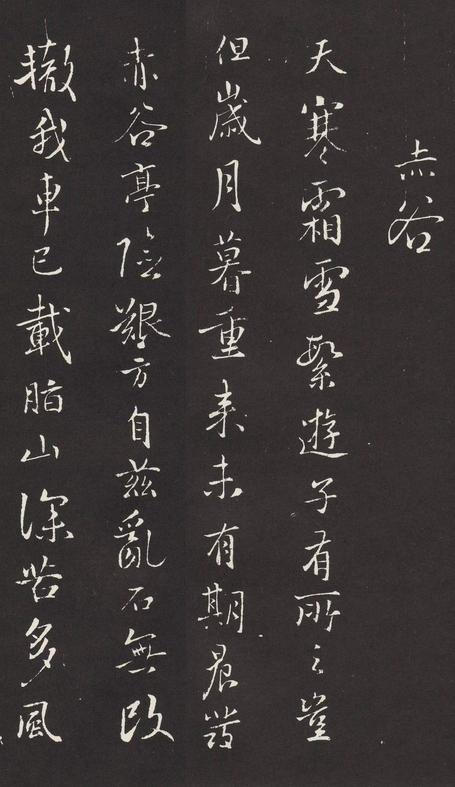 赤谷
天寒霜雪繁遊子有所之豈
但歲月暮重来未有期晨發
赤谷亭險艱方自兹亂石無改
轍我車已載脂山深苦多風